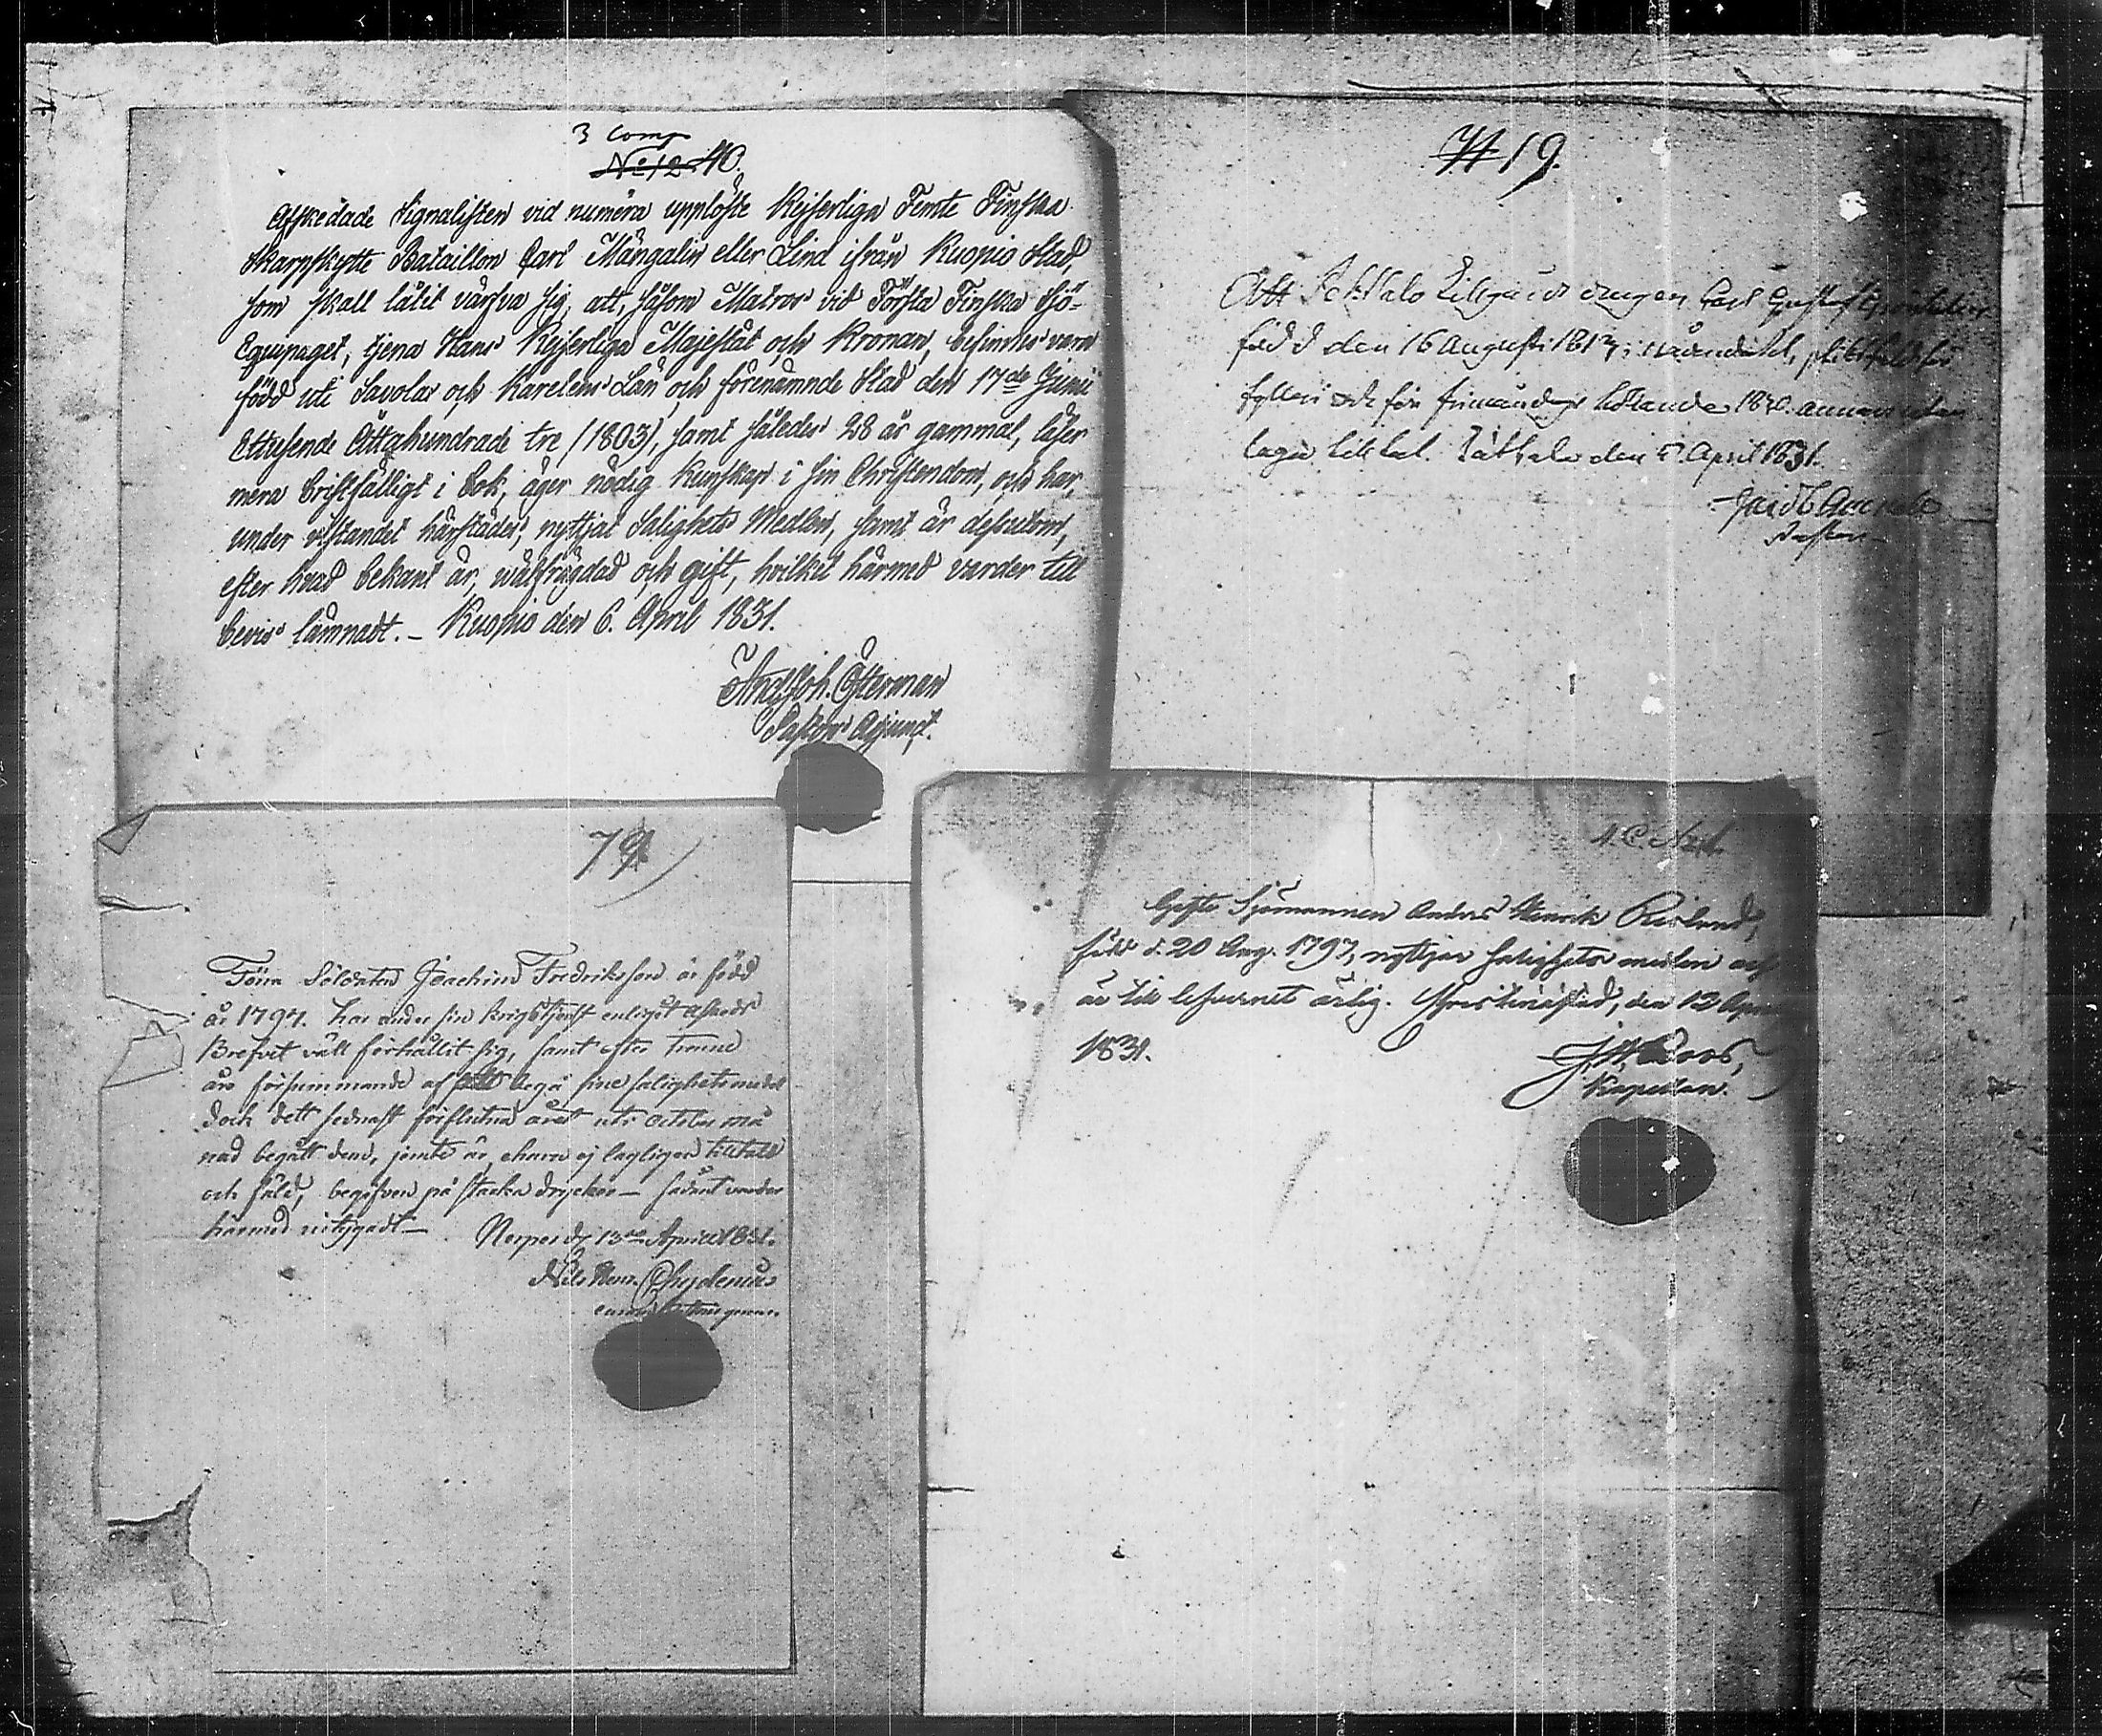 3 Comp
No 12 40.
Afskedade Signalisten vid numera upplöste Kejserliga Femte Finska
Skarpskytte Bataillon Carl Mångalin eller Lind ifrån Kuopio Stad,
som skall låtit värfva sig, att, såsom Matros vid Första Finska Sjö-
Equipaget, tjena Hans Kejserliga Majestät och Kronan, befinnes vara
född uti Savolax och Karelens Län och förenämnde Stad den 17de Junii
Ettusende Åttahundrade tre (1803), samt således 28 år gammal, läser
mera bristfälligt i bok, äger nödig Kunskap i sin Christendom, och har,
under vistandet härstädes, nyttjat Salighets Medlen, samt är dessutom,
efter hvad bekant är, wälfrägdad och gift, hvilket härmed varder till
bevis lämnadt. – Kuopio den 6. April 1831.
And. Joh. Österman
Pastors Adjunct.
№ 19.
Att drängen Carl Gustaf
född den 16 Augusti 181
fylleri och för 1830. annars utan
laga tilltal. den April 1831.
Pastor
79
Förra Soldaten Joachim Fredriksson är född
år 1797. Har under sin Krigstjenst enligt Afskeds
Brefvet väll förhållit sig, samt efter trenne
års försummande af att begå sine salighetsmedel
dock dett sednast förflutna året uti October må
nad begått dem, jemte är, ehuru ej lagligen tilltald
och fäld, begifven på starka drycker – sådant varder
härmed witsgadt – Nerpes d. 13de April 1831.
Nils Henr. Chydenius
Gifte Sjömannen Anders Henrik Roslund,
född d. 20 Aug. 1797, nyttjar salighets medlen och
är till lefvernet ärlig. Christinæstad, den 12 April
1831.
J. H. Roos,
Kapellan.